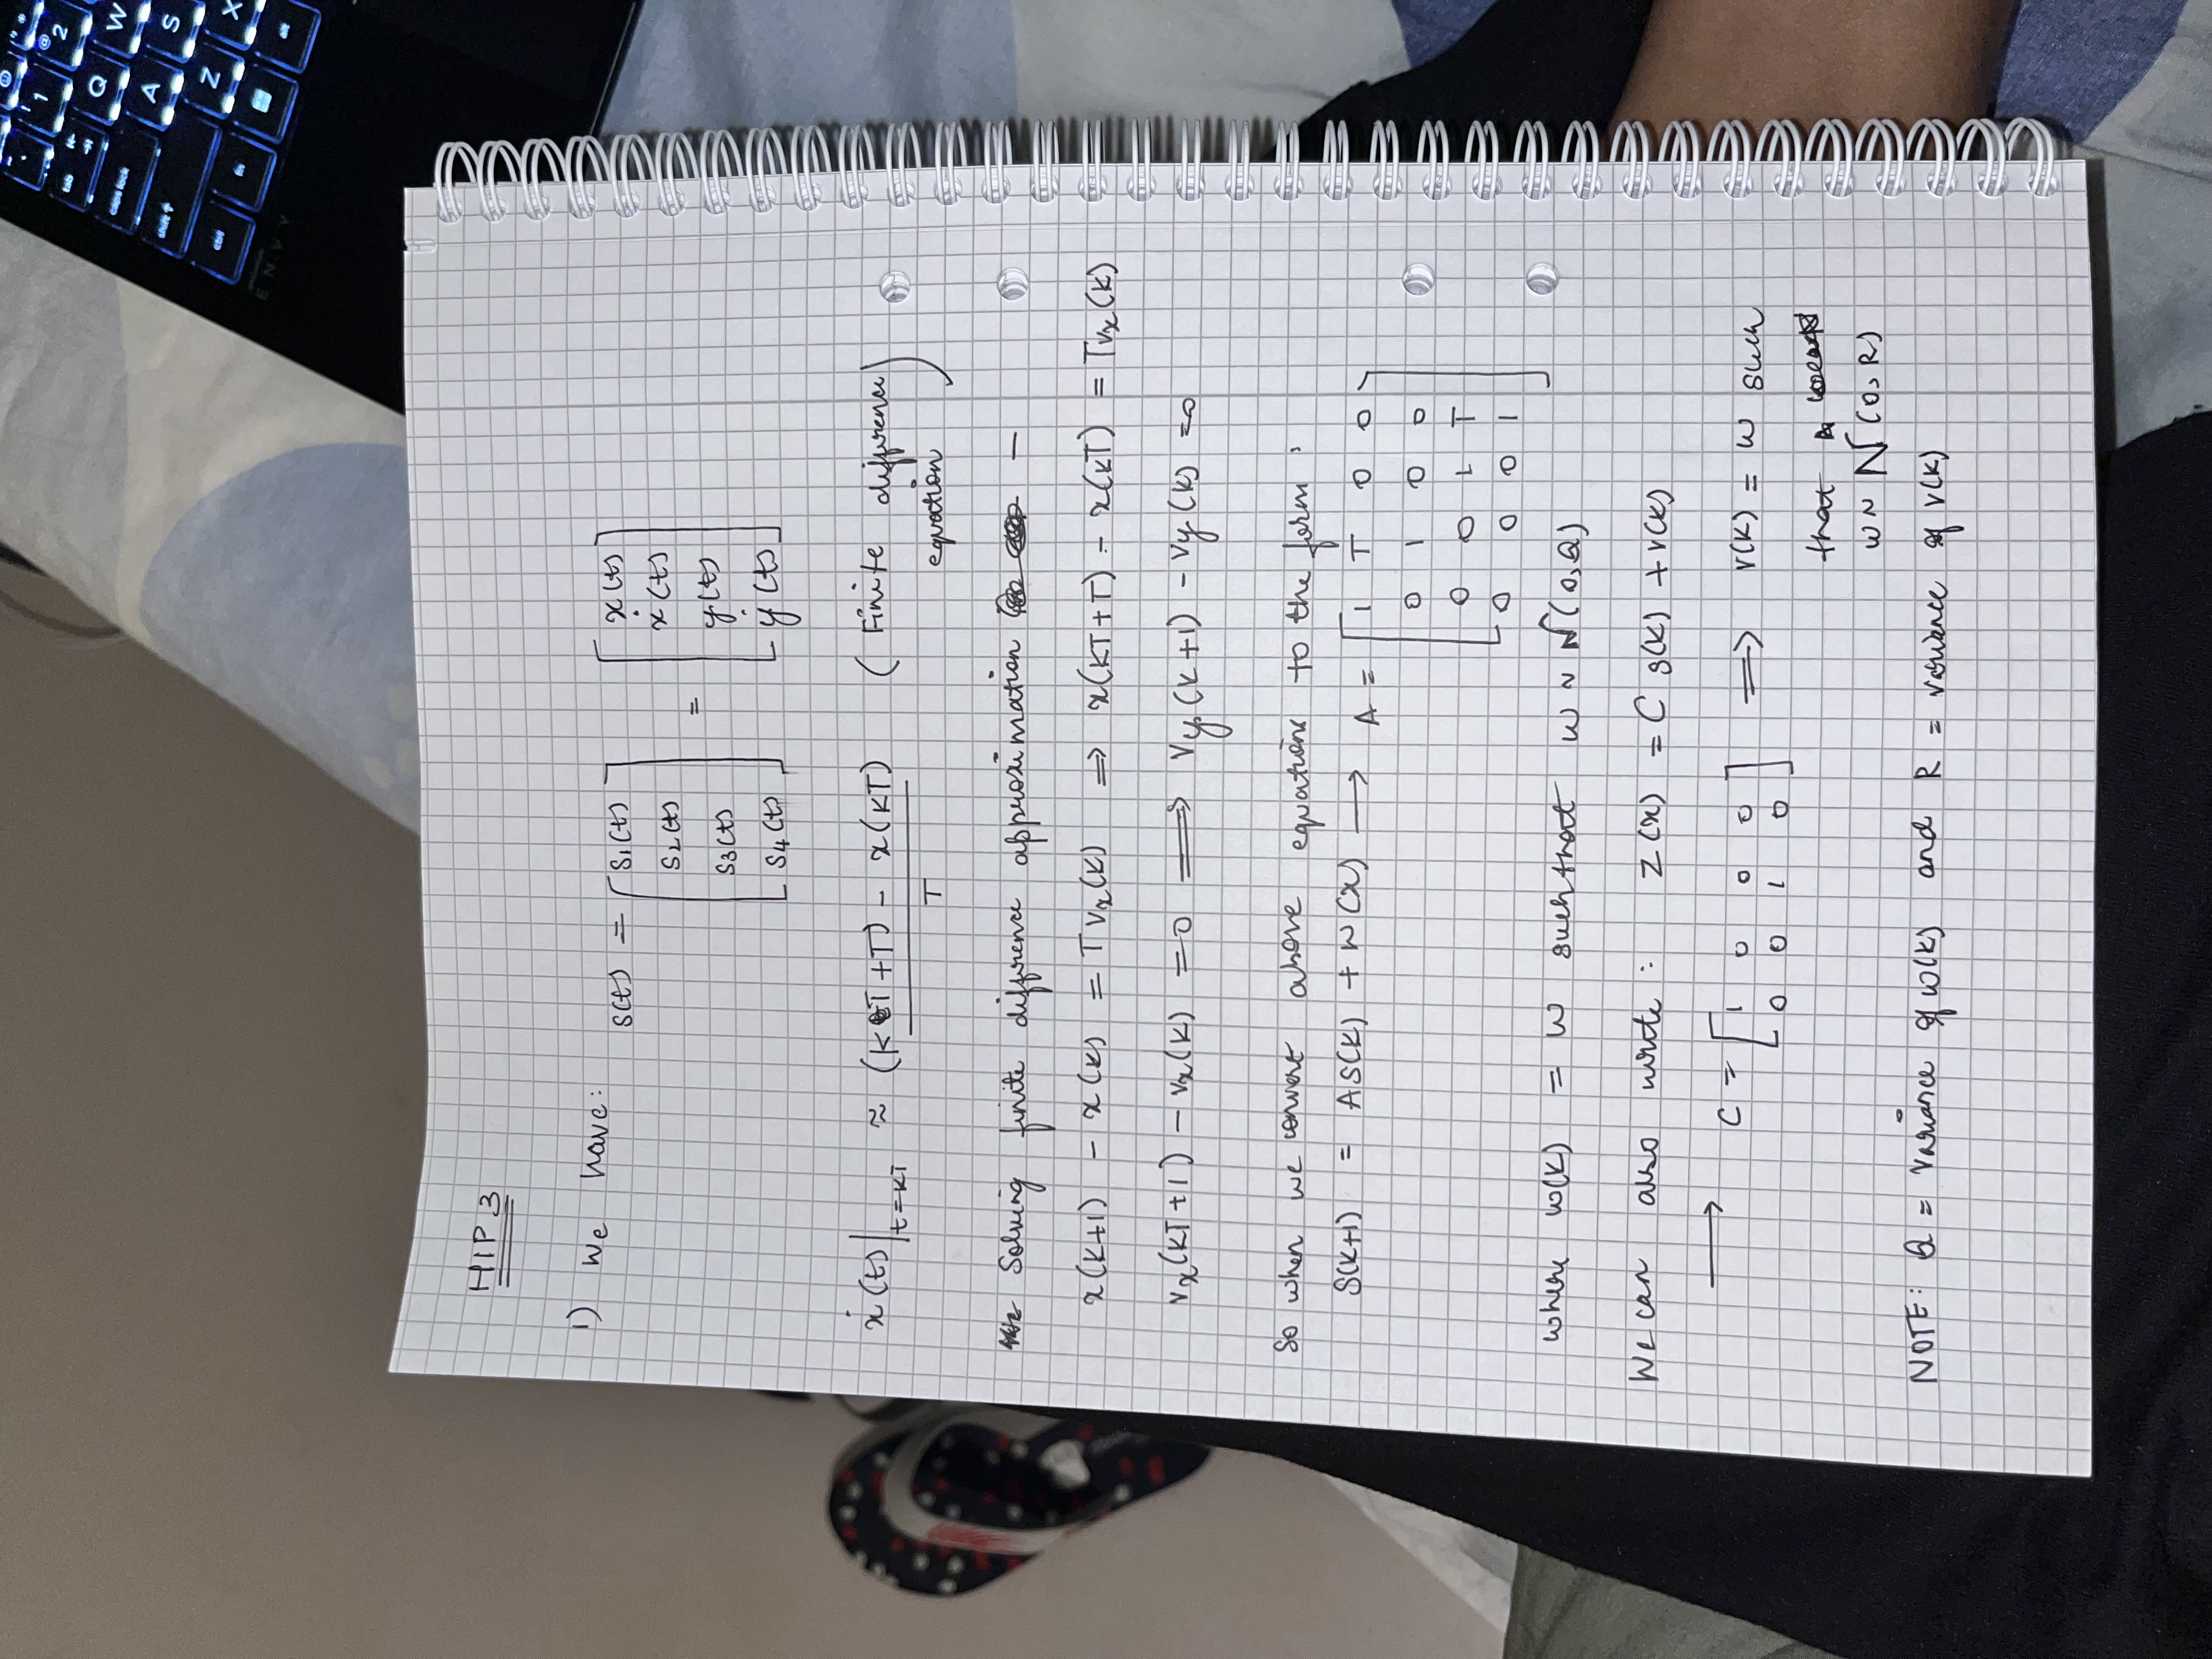 HIP 3
1) We have:
s(t) = [ s1(t) s2(t) s3(t) s4(t) ] = [ x(t) ẋ(t) y(t) ẏ(t) ]
ẋ(t)|t=kT ≈ (kT+T) - x(kT) / T (Finite difference equation)
Solving finite difference approximation —
x(k+1) - x(k) = T vx(k) ⇒ x(kT+T) - x(kT) = Tvx(k)
vx(kT+1) - vx(k) = 0 ⟹ vy(k+1) - vy(k) = 0
So when we convert above equations to the form:
S(k+1) = AS(k) + W(x) → A = [ 1 T 0 0
0 1 0 0
0 0 1 T
0 0 0 1 ]
where w(k) = w such that w ~ N(0,Q)
We can also write: Z(x) = C s(k) + v(k)
→ C = [ 1 0 0 0
0 0 1 0 ] ⟹ v(k) = w such
that
w ~ N(0,R)
NOTE: Q = variance of w(k) and R = variance of v(k)
@
1
@
2
tab
Q
W
caps lock
A
S
shift ↑
Z
X
ctrl
fn
alt
ENVY